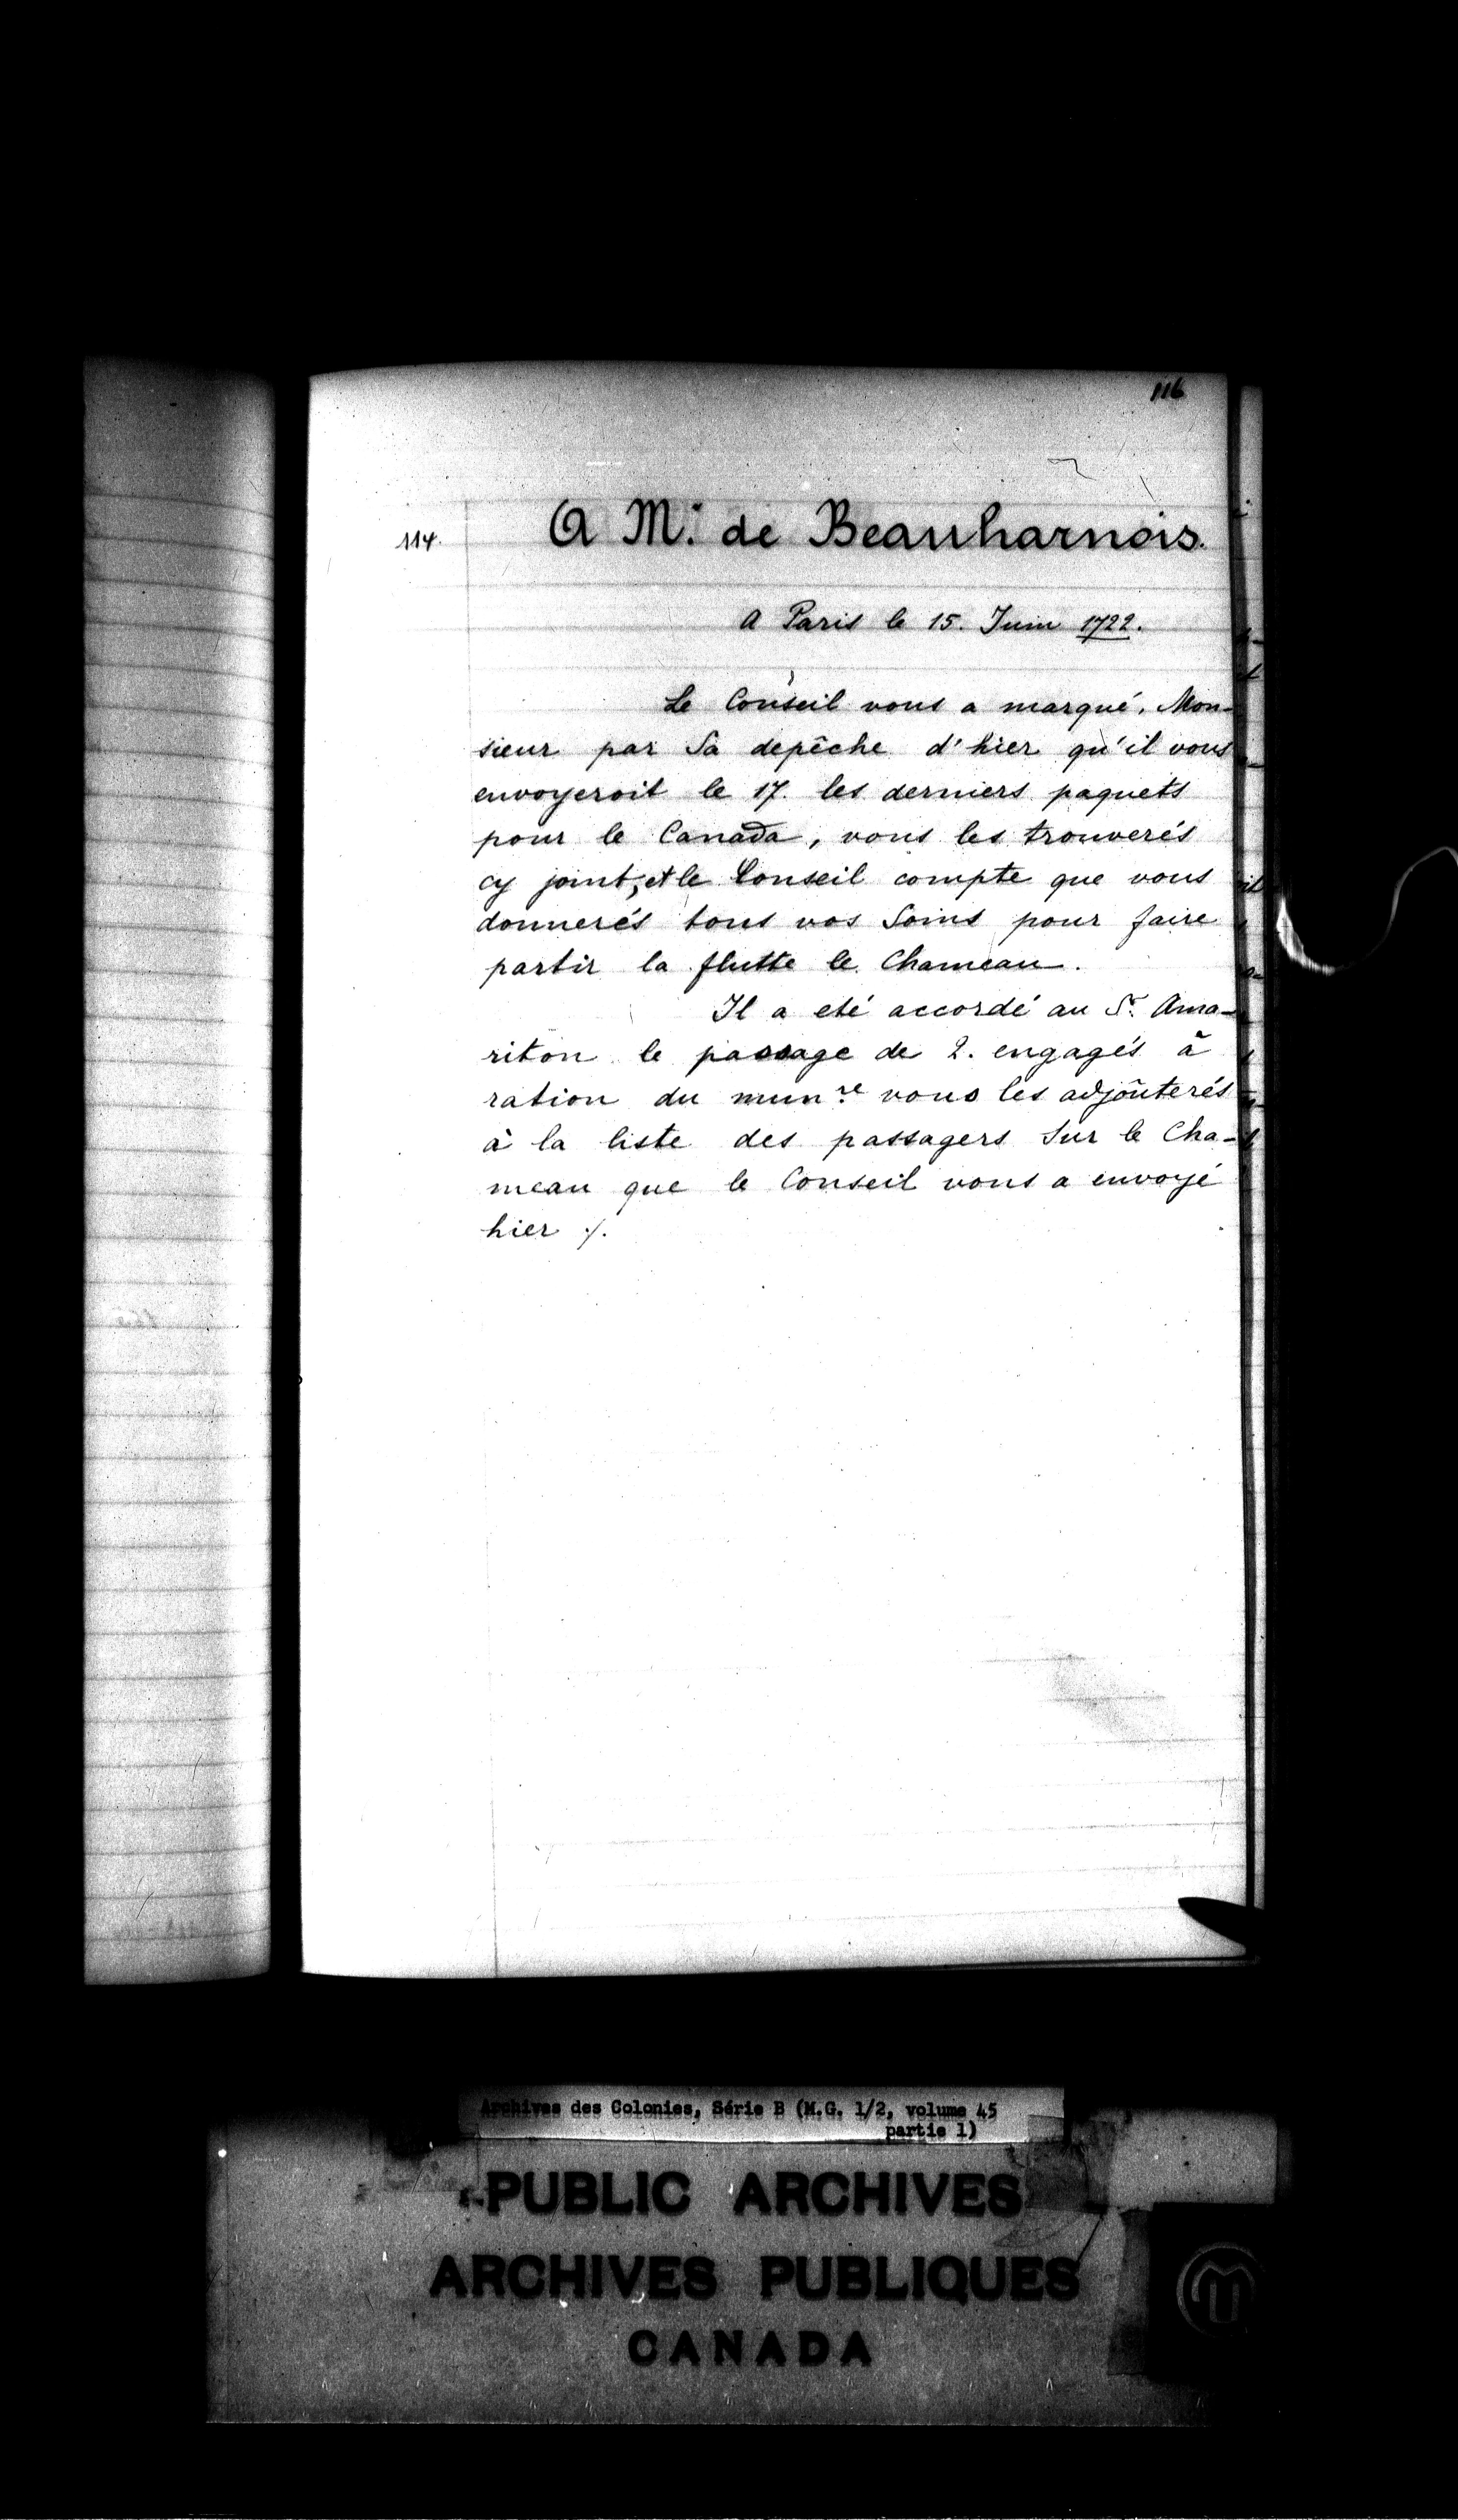 116
114.
A M.r de Beauharnois.
A Paris le 15. Juin 1722.
Le Conseil vous a marqué, Mon-
sieur par Sa depêche d'hier qu'il vous
envoyeroit le 17. les derniers paquets
pour le Canada, vous les trouverés
cy joint, et le Conseil compte que vous
donnerés tous vos Soins pour faire
partir la flutte le Chameau.
Il a eté accordé au Sr. Ama-
riton le passage de 2. engagés à
ration du mun.re vous les adjoûterés
à la liste des passagers Sur le Cha-
meau que le Conseil vous a envoyé
hier ./.
Archives des Colonies, Série B (M.G. 1/2, volume 45
partie 1)
PUBLIC ARCHIVES
ARCHIVES PUBLIQUES
CANADA